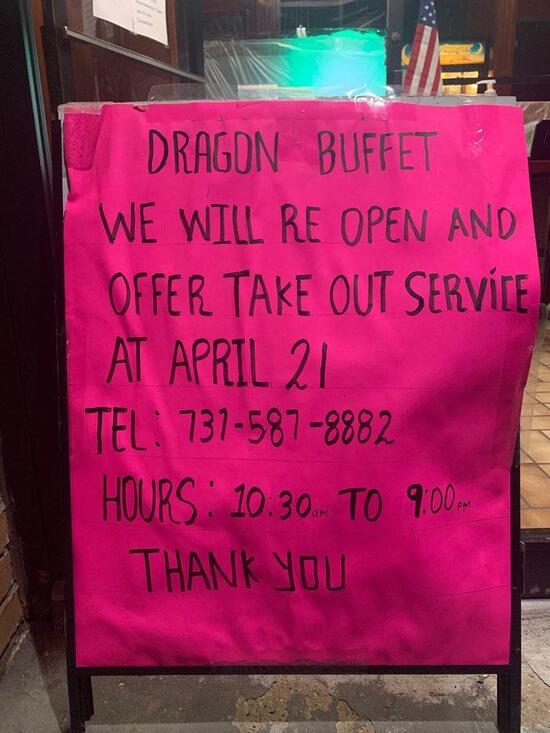 DRAGON BUFFET
WE WILL RE OPEN AND
OFFER TAKE OUT SERVICE
AT APRIL 21
TEL: 731-587-8882
HOURS: 10:30am TO 9:00pm
THANK YOU